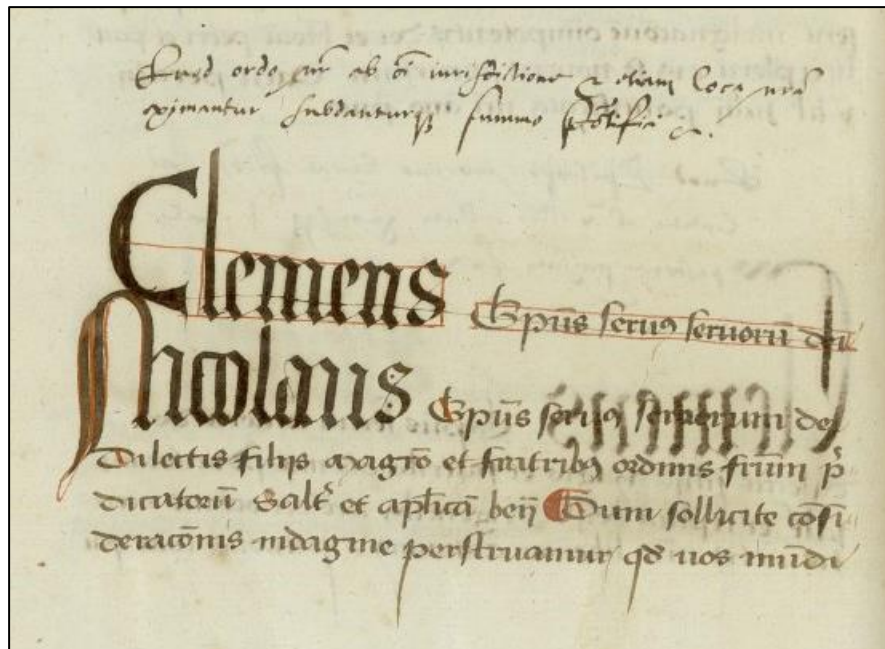 Quod ordo nr̄ ab oī iurisdictione & etiam loca nrā
eximantur subdanturqꝫ summo Pontifici
Clemens Ep̄us seruꝰ seruorū dei
Nicolaus Ep̄us seruꝰ seruorum dei
Dilectis filijs magrō et fratribꝰ ordinis frūm p̄
dicatorū Salt̄ et ap̄licā beīj Cum sollicite cōsi
deracōnis indagine perstruamur qd̄ uos mūdi